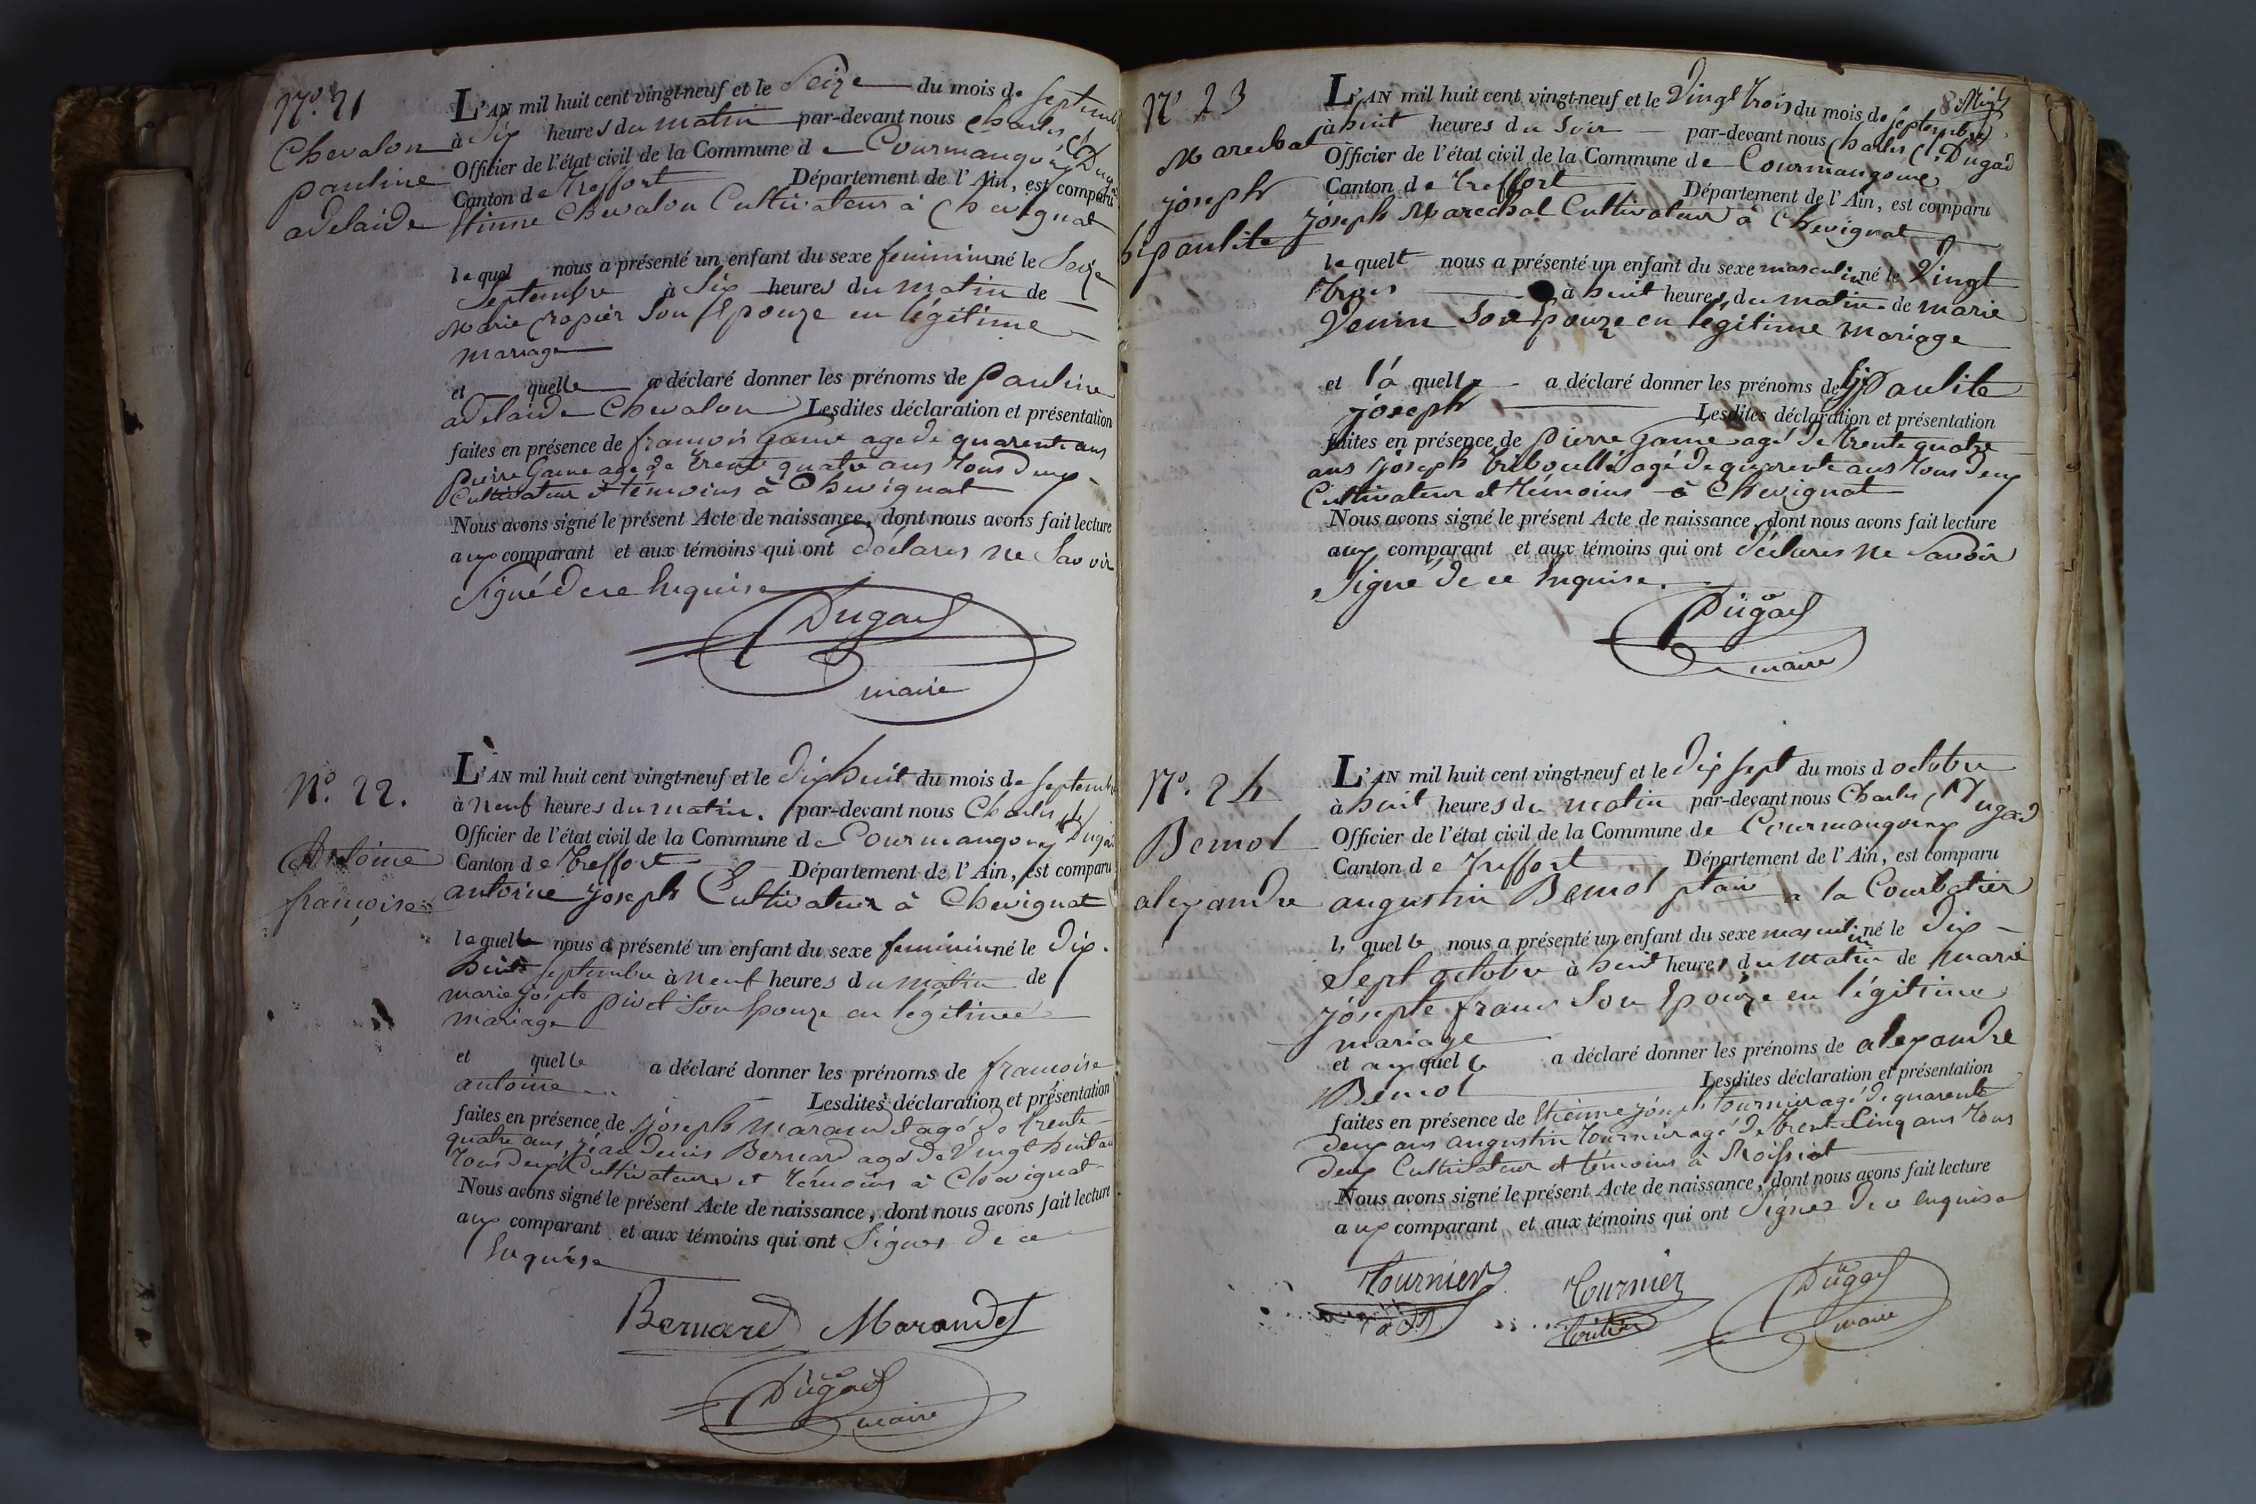 N.º 21
Chevalon
pauline
adelaide
L'AN mil huit cent vingt-neuf et le Seize du mois de Septembre
à Six heures du matin par-devant nous Charles Cl Dugad
Officier de l'état civil de la Commune de Courmangoux
Canton de treffort Département de l'Ain, est comparu
Etienne Chevalon Cultivateur à Chevignat
lequel nous a présenté un enfant du sexe feminin né le Seize
Septembre à Six heures du matin de
marie Son Epouze en légitime
mariage
et quelle a déclaré donner les prénoms de pauline
adelaide Chevalon Lesdites déclaration et présentation
faites en présence de francois Game age de quarente ans
pierre Game age de trente quatre ans tous deux
Cultivateur et témoins à Chevignat
Nous avons signé le présent Acte de naissance, dont nous avons fait lecture
aux comparant et aux témoins qui ont déclares ne Savoir
Signé de ce Enquise
Dugad
maire
N.º 22.
Antoine
françoise
L'AN mil huit cent vingt-neuf et le dix huit du mois de Septembre
à neuf heures du matin. par-devant nous Charles Cl Dugad
Officier de l'état civil de la Commune de Courmangoux
Canton de treffort Département de l'Ain, est comparu
antoine joseph Cultivateur à Chevignat
lequelle nous a présenté un enfant du sexe feminin né le dix-
huit Septembre à neuf heures du matin de
marie josepte pivet Son Epouze en légitime
mariage
et quelle a déclaré donner les prénoms de francoise
antoine Lesdites déclaration et présentation
faites en présence de joseph Marandet agé de trente
quatre ans, jean denis Bernard agé de Vingt huit ans
tous deux Cultivateurs et témoins à Chevignat
Nous avons signé le présent Acte de naissance, dont nous avons fait lecture
aux comparant et aux témoins qui ont Signés de ce
Enquise
Bernard Marandet
Dugad
maire
N.º 23
Marechal
joseph
hipaulite
L'AN mil huit cent vingt-neuf et le Vingt trois du mois de Septembre
à huit heures du Soir par-devant nous Charles Cl Dugad
Officier de l'état civil de la Commune de Courmangoux
Canton de treffort Département de l'Ain, est comparu
joseph Marechal Cultivateur à Chevignat
lequelle nous a présenté un enfant du sexe masculin né le Vingt
trois à huit heures du matin de marie
Venin Son Epouze en légitime mariage
et la quelle a déclaré donner les prénoms de hipaulite
joseph Lesdites déclaration et présentation
faites en présence de pierre Game agé de trente quatre
ans joseph tribouillé agé de quarente ans tous deux
Cultivateur et témoins à Chevignat
Nous avons signé le présent Acte de naissance, dont nous avons fait lecture
aux comparant et aux témoins qui ont déclares ne Savoir
Signé de ce Enquise.
Dugad
maire
N.º 24
Bemol
alexandre
L'AN mil huit cent vingt-neuf et le dix Sept du mois d octobre
à huit heures du matin par-devant nous Charles Cl Dugad
Officier de l'état civil de la Commune de Courmangoux
Canton de treffort Département de l'Ain, est comparu
augustin Bemol a la Courbatier
le quelle nous a présenté un enfant du sexe masculin né le dix-
Sept octobre à huit heures du matin de marie
josepte franc Son Epouze en légitime
mariage
et aux quelle a déclaré donner les prénoms de alexandre
Bemol Lesdites déclaration et présentation
faites en présence de Etienne joseph tournier agé de quarente
deux ans augustin tournier agé de trente Cinq ans tous
deux Cultivateur et témoins à Roissiat
Nous avons signé le présent Acte de naissance, dont nous avons fait lecture
aux comparant et aux témoins qui ont Signés de ce Enquise
Tournier Tournier Dugad
maire